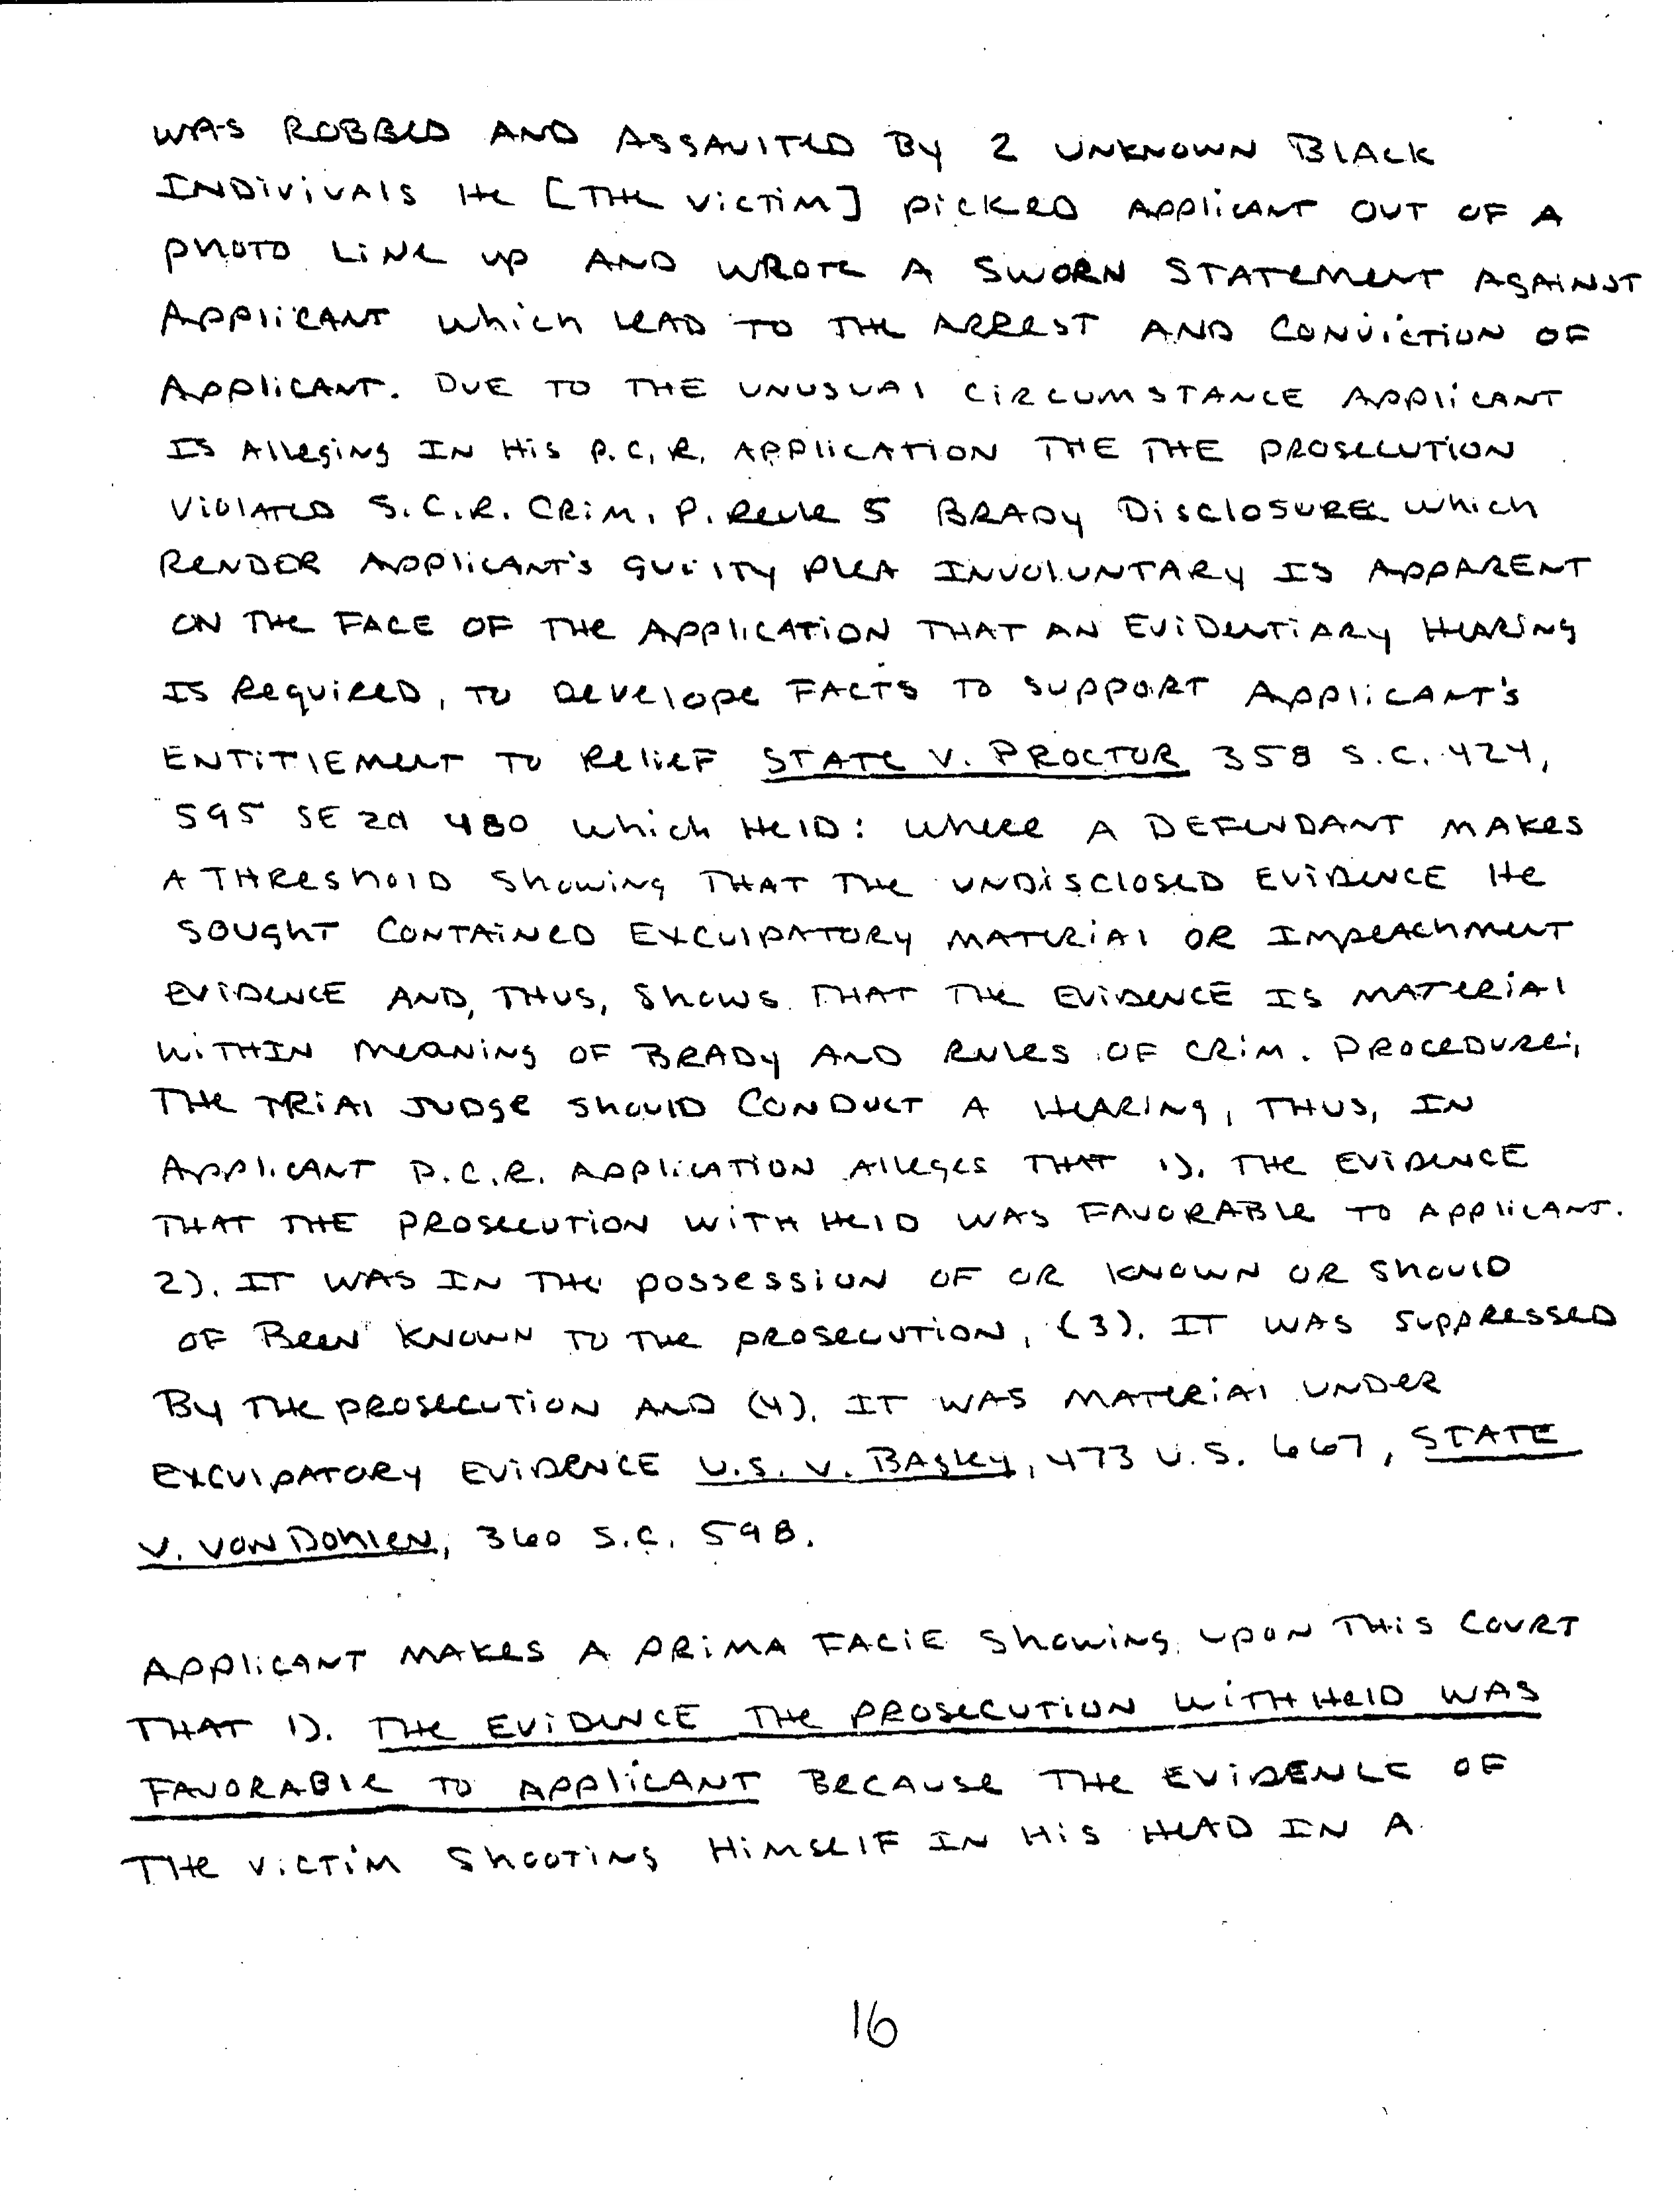 WAS ROBBED AND ASSAULTED BY 2 UNKNOWN BLACK
INDIVIVALS HE [THE VICTIM] PICKED APPLICANT OUT OF A
PHOTO LINE UP AND WROTE A SWORN STATEMENT AGAINST
APPLICANT WHICH LEAD TO THE ARREST AND CONVICTION OF
APPLICANT. DUE TO THE UNUSUAL CIRCUMSTANCE APPLICANT
IS ALLEGING IN HIS P.C.R. APPLICATION THE THE PROSECUTION
VIOLATED S.C.R. CRIM. P. RULE 5 BRADY DISCLOSURE WHICH
RENDER APPLICANT'S GUILTY PLEA INVOLUNTARY IS APPARENT
ON THE FACE OF THE APPLICATION THAT AN EVIDENTIARY HEARING
IS REQUIRED, TO DEVELOPE FACTS TO SUPPORT APPLICANT'S
ENTITLEMENT TO RELIEF STATE V. PROCTOR 358 S.C. 424,
595 SE 2d 480 WHICH HELD: WHERE A DEFENDANT MAKES
A THRESHOLD SHOWING THAT THE UNDISCLOSED EVIDENCE HE
SOUGHT CONTAINED EXCULPATORY MATERIAL OR IMPEACHMENT
EVIDENCE AND, THUS, SHOWS THAT THE EVIDENCE IS MATERIAL
WITHIN MEANING OF BRADY AND RULES OF CRIM. PROCEDURE;
THE TRIAL JUDGE SHOULD CONDUCT A HEARING, THUS, IN
APPLICANT P.C.R. APPLICATION ALLEGES THAT 1). THE EVIDENCE
THAT THE PROSECUTION WITH HELD WAS FAVORABLE TO APPLICANT.
2). IT WAS IN THE POSSESSION OF OR KNOWN OR SHOULD
OF BEEN KNOWN TO THE PROSECUTION, (3). IT WAS SUPPRESSED
BY THE PROSECUTION AND (4). IT WAS MATERIAL UNDER
EXCULPATORY EVIDENCE U.S. V. BAGLEY, 473 U.S. 667, STATE
V. VON DOHLEN, 360 S.C. 598.
APPLICANT MAKES A PRIMA FACIE SHOWING UPON THIS COURT
THAT 1). THE EVIDENCE THE PROSECUTION WITH HELD WAS
FAVORABLE TO APPLICANT BECAUSE THE EVIDENCE OF
THE VICTIM SHOOTING HIMSELF IN HIS HEAD IN A
16